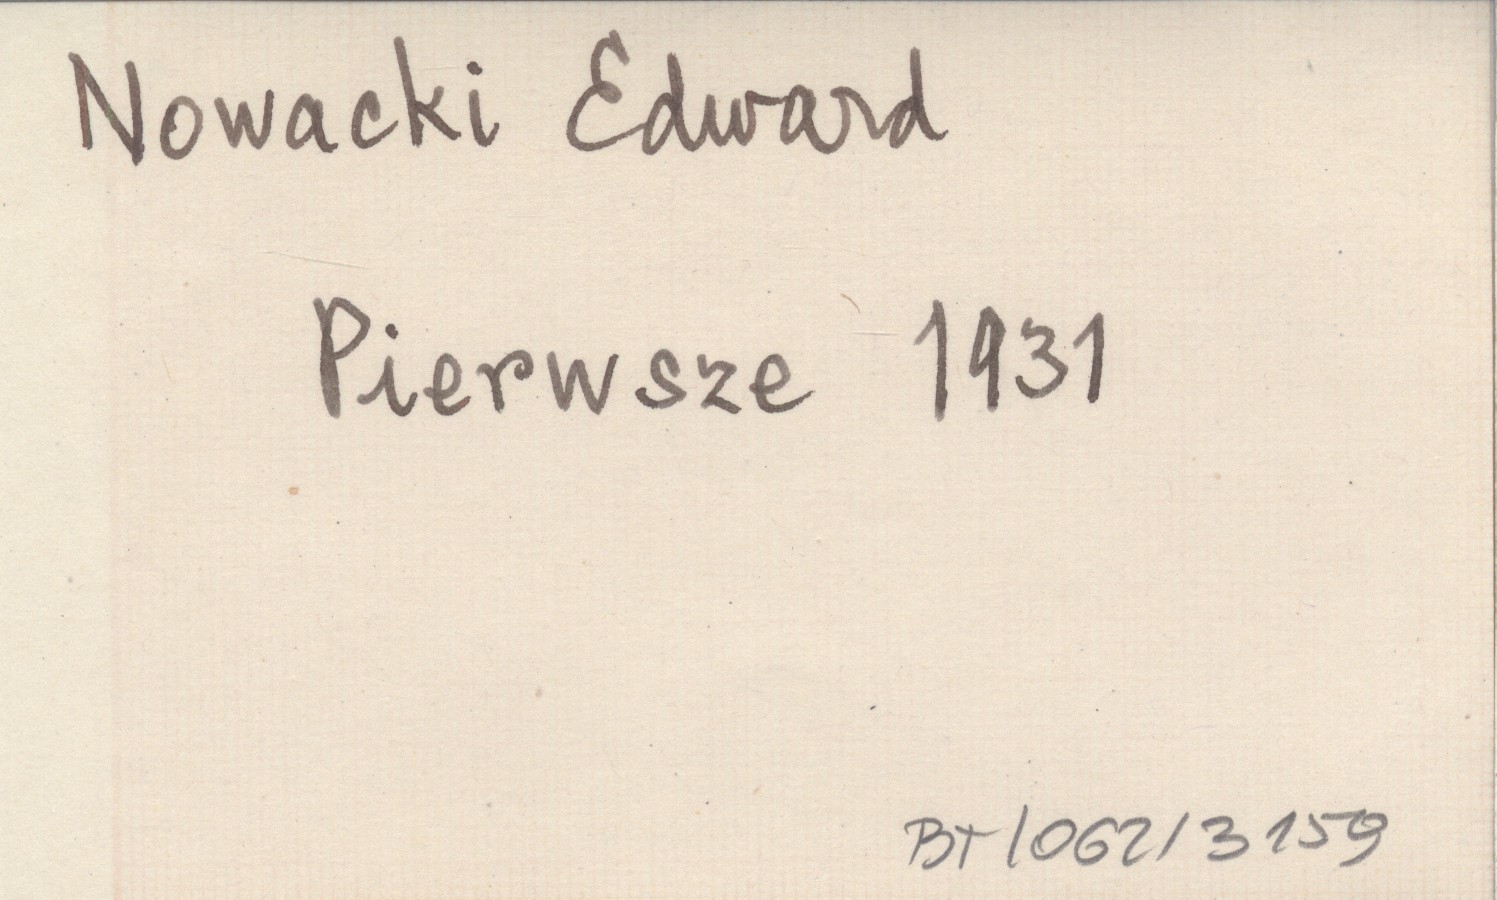 Nowacki Edward
Pierwsze 1931
BT/062/3159